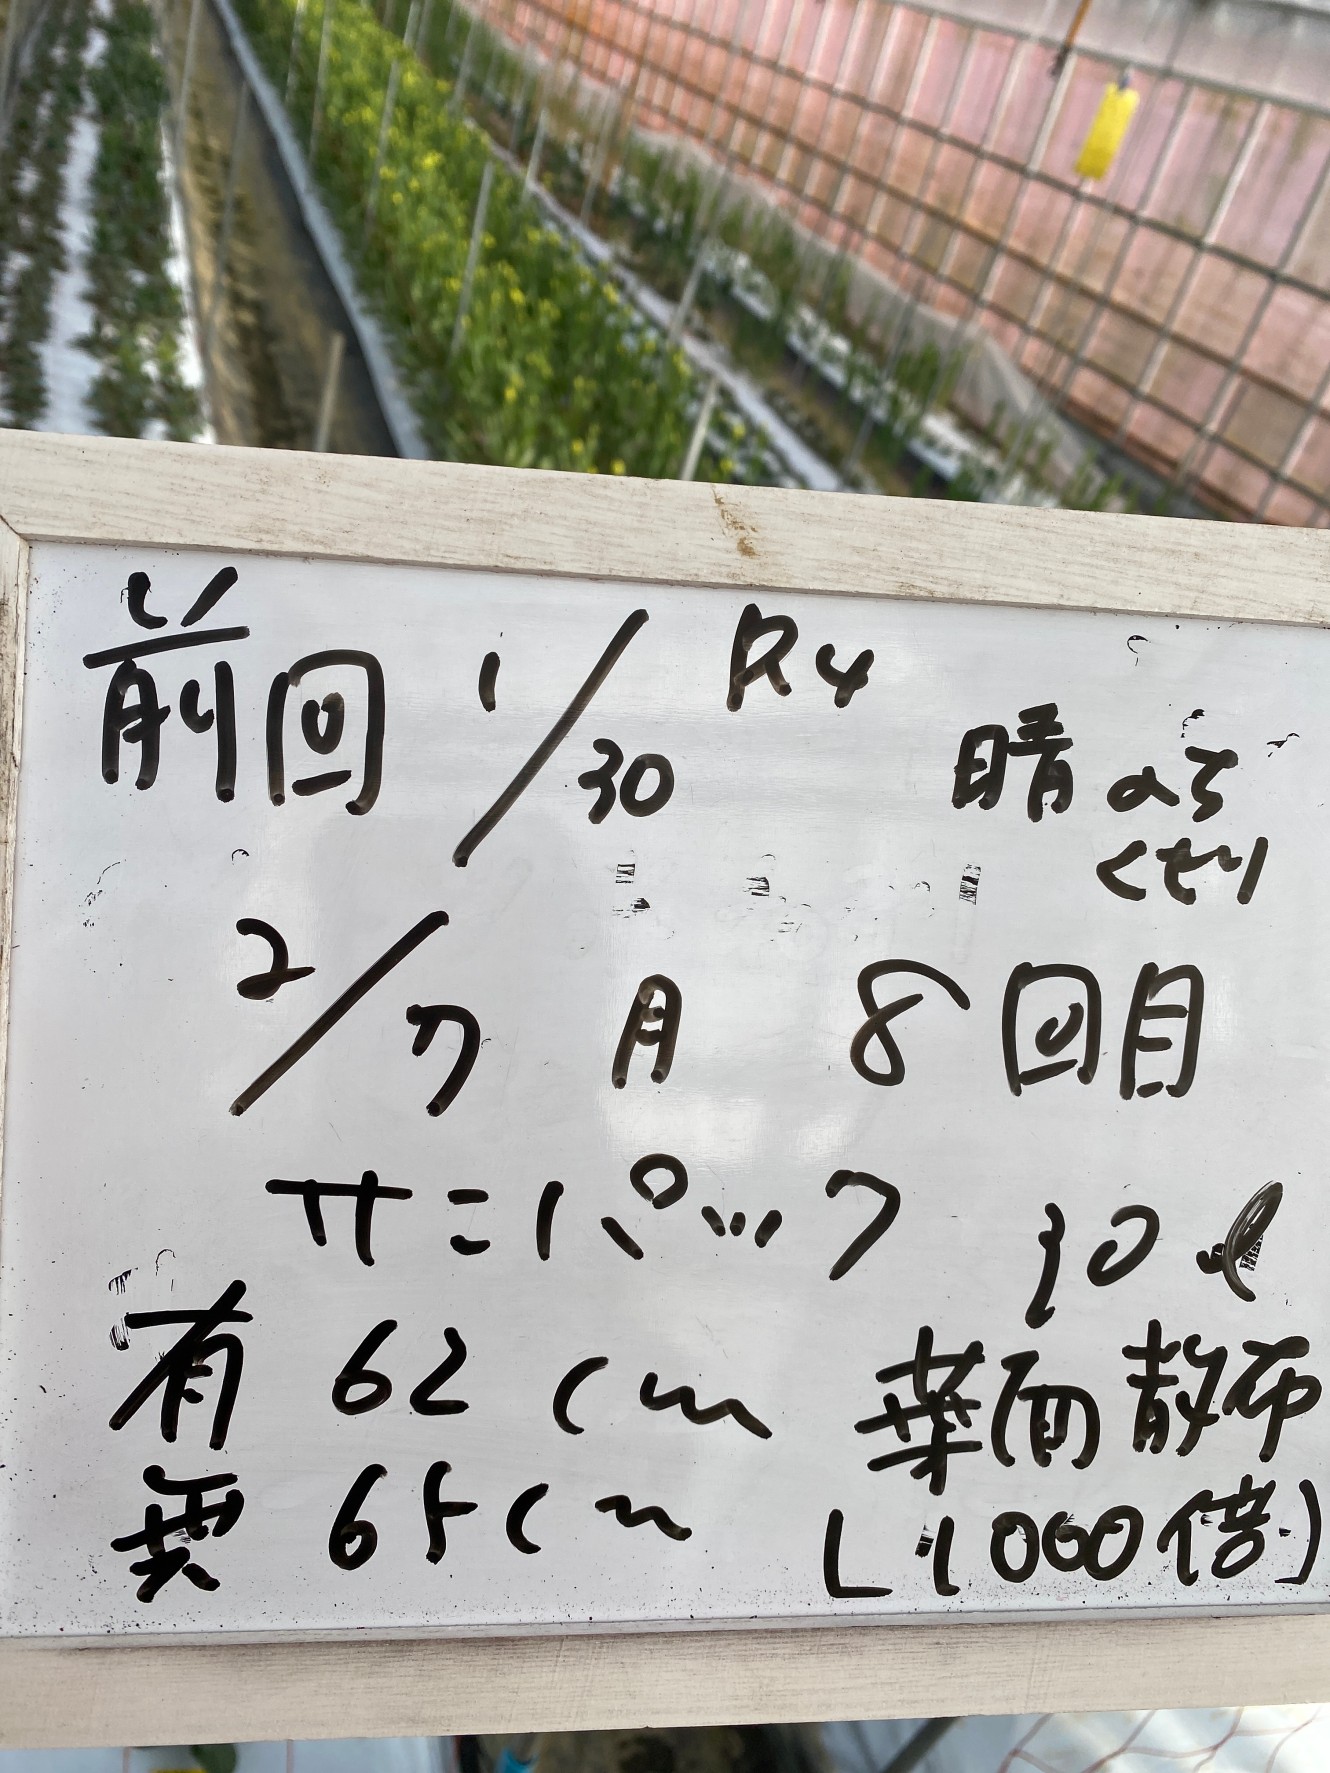 前回 1/30 R4
晴のち
くもり
2/7 月 8回目
サニパック 30ℓ
有 62cm 葉面散布
無 65cm (1000倍)